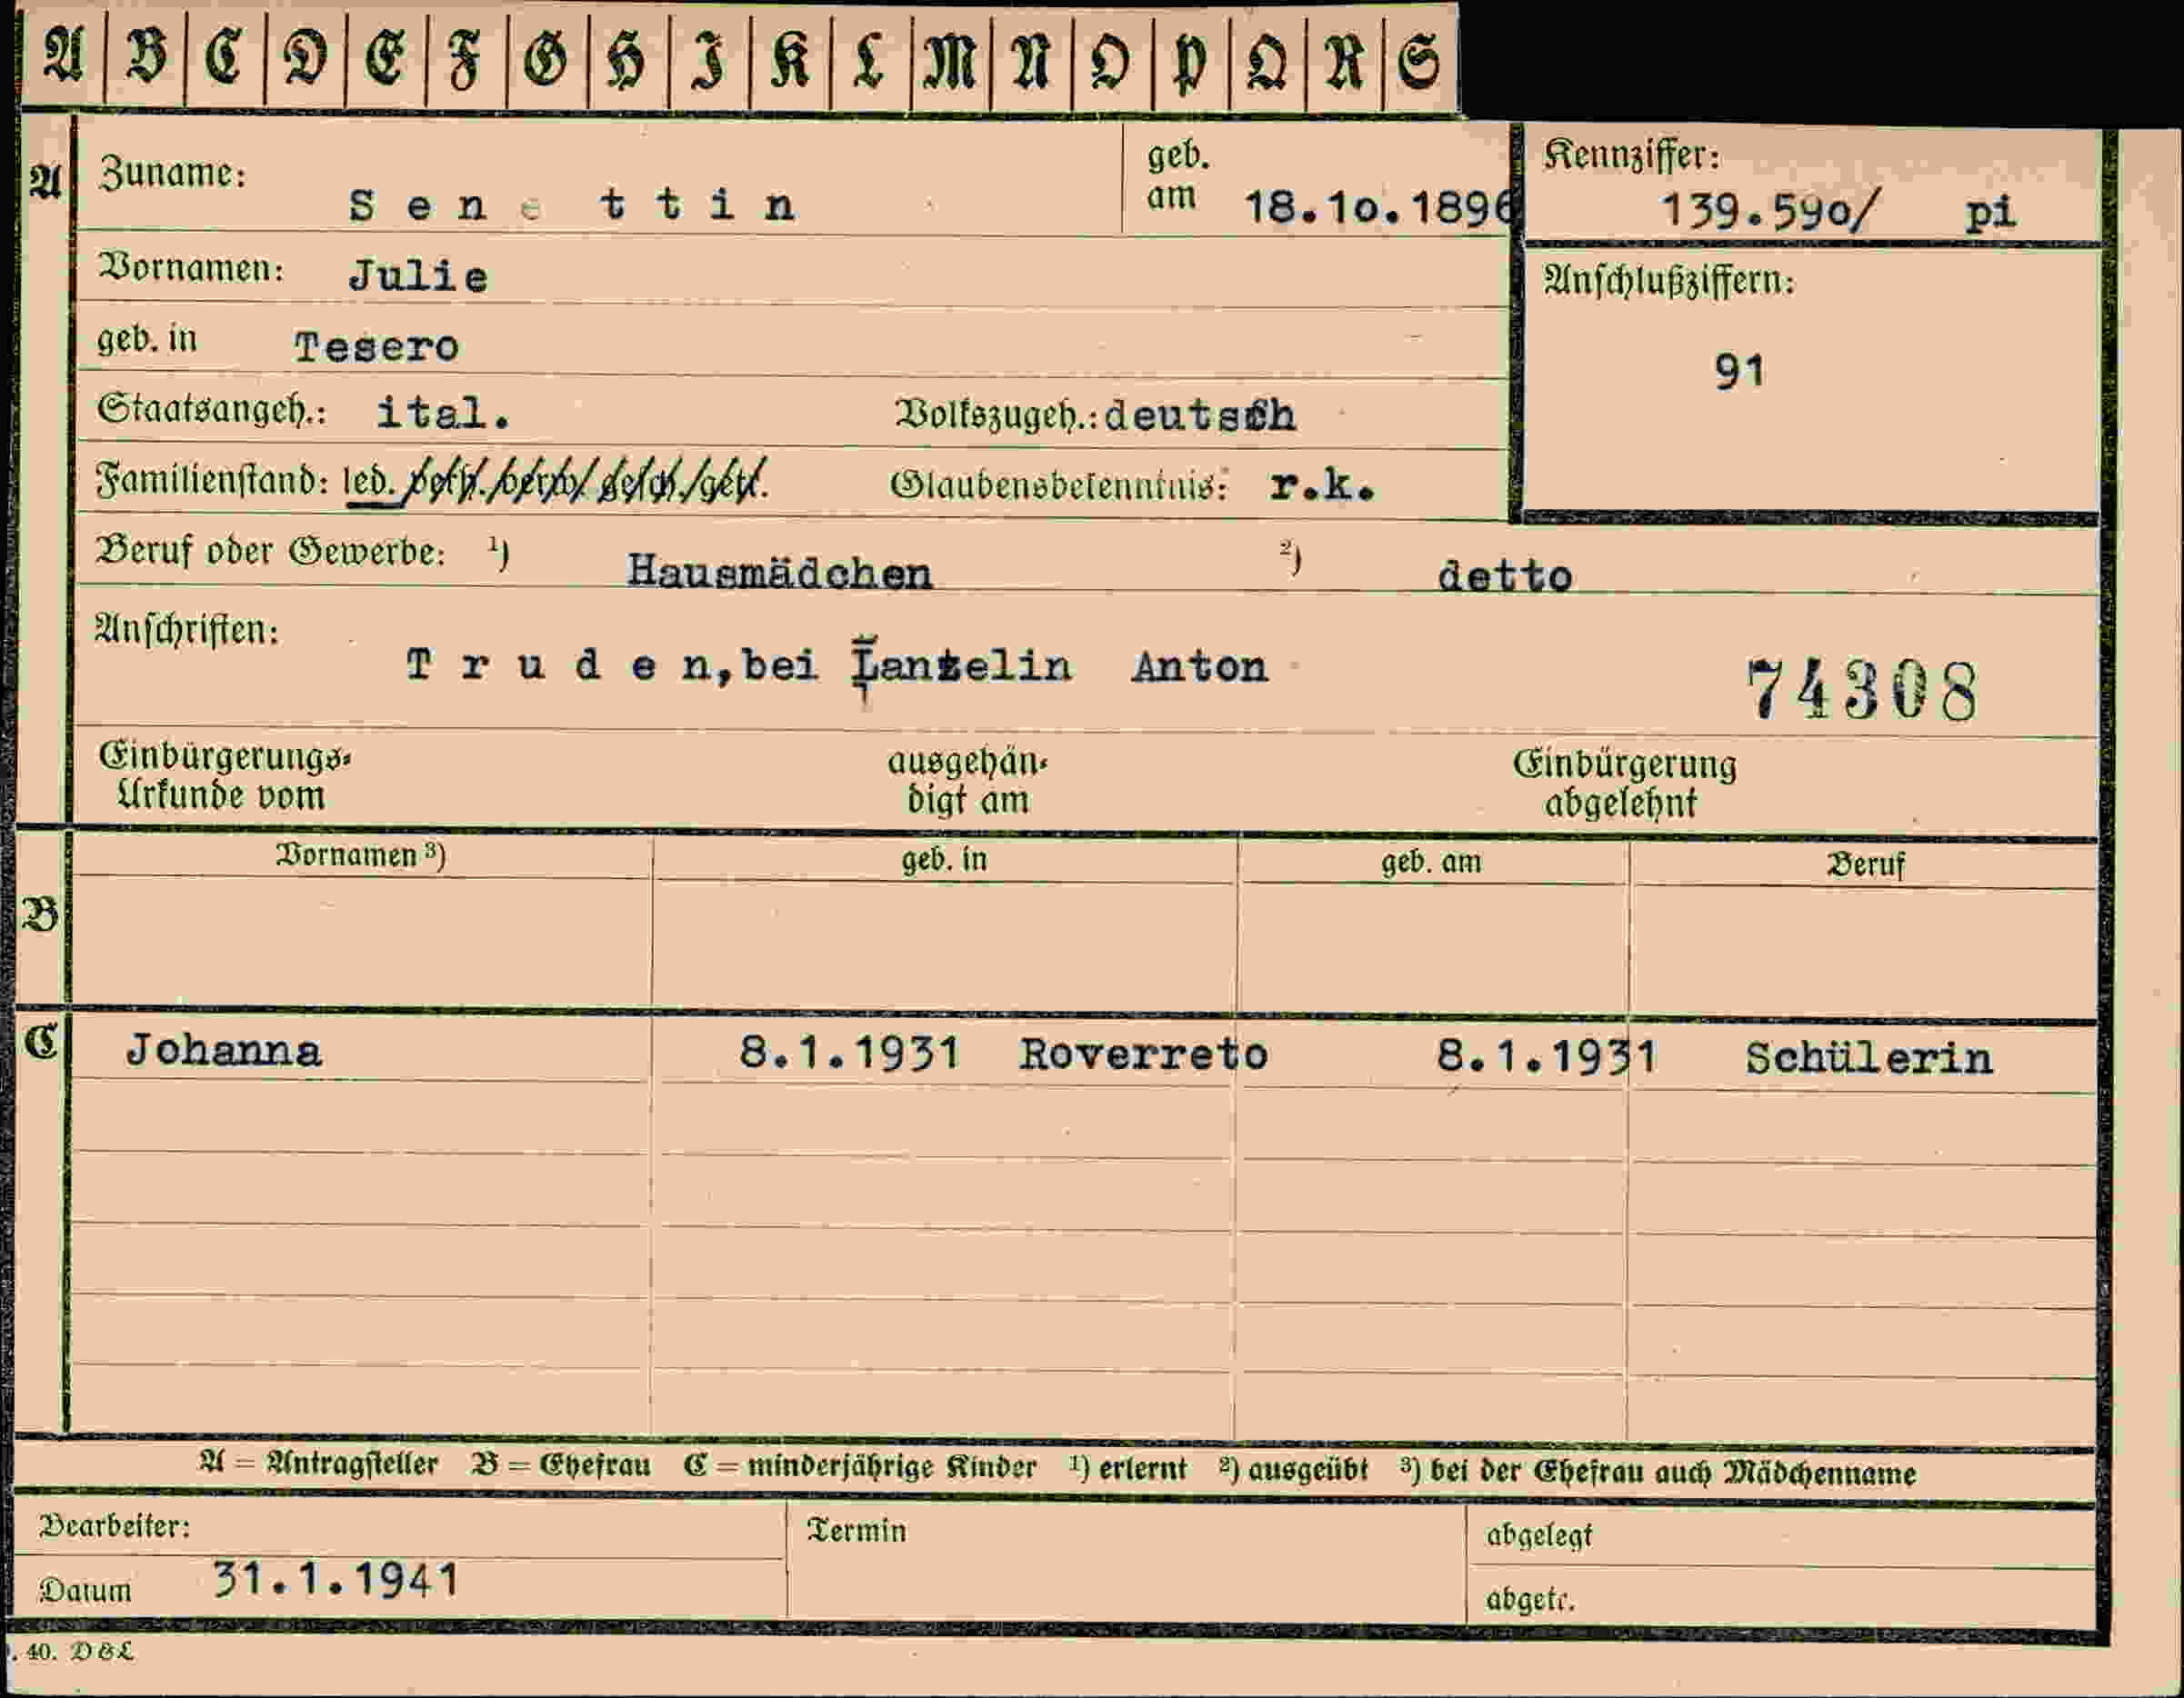 A B C D E F G H I K L M N O P Q R S
A Zuname: S e n e t t i n geb. am 18.10.1896 Kennziffer: 139.590/ pi
Vornamen: Julie Anschlußziffern:
geb. in Tesero 91
Staatsangeh.: ital. Volkszugeh.: deutsch
Familienstand: led. /verh./verw./gesch./getr. Glaubensbekenntnis: r.k.
Beruf oder Gewerbe: ¹) Hausmädchen ²) detto
Anschriften: T r u d e n, bei Anton 74308
Einbürgerungs- ausgehän- Einbürgerung
Urkunde vom digt am abgelehnt
Vornamen ³) geb. in geb. am Beruf
B
C Johanna 8.1.1931 Roverreto 8.1.1931 Schülerin
A = Antragsteller B = Ehefrau C = minderjährige Kinder ¹) erlernt ²) ausgeübt ³) bei der Ehefrau auch Mädchenname
Bearbeiter: Termin abgelegt
Datum 31.1.1941 abgetr.
. 40. D & L